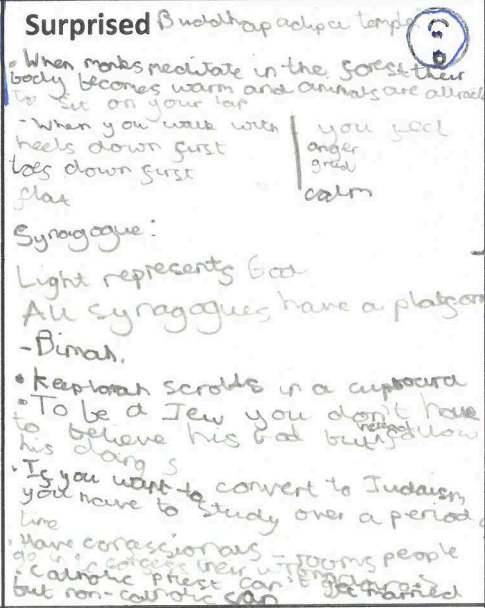 Surprised Buddhapadipa temple
• When monks meditate in the forest their
body becomes warm and animals are attract
to sit on your lap
- When you walk with you feel
heels down first anger
toes down first greed
flat calm
Synagogue:
Light represents God
All synagogues have a platform
- Bimah.
• Keep torah scrolls in a cupboard
• To be a Jew you don't have
to believe his God but instead follow
his doings
• If you want to convert to Judaism,
you have to study over a period
time
• Have confessionals - rooms people
go in to confess their
• Catholic priest can't get married
but non-catholic can